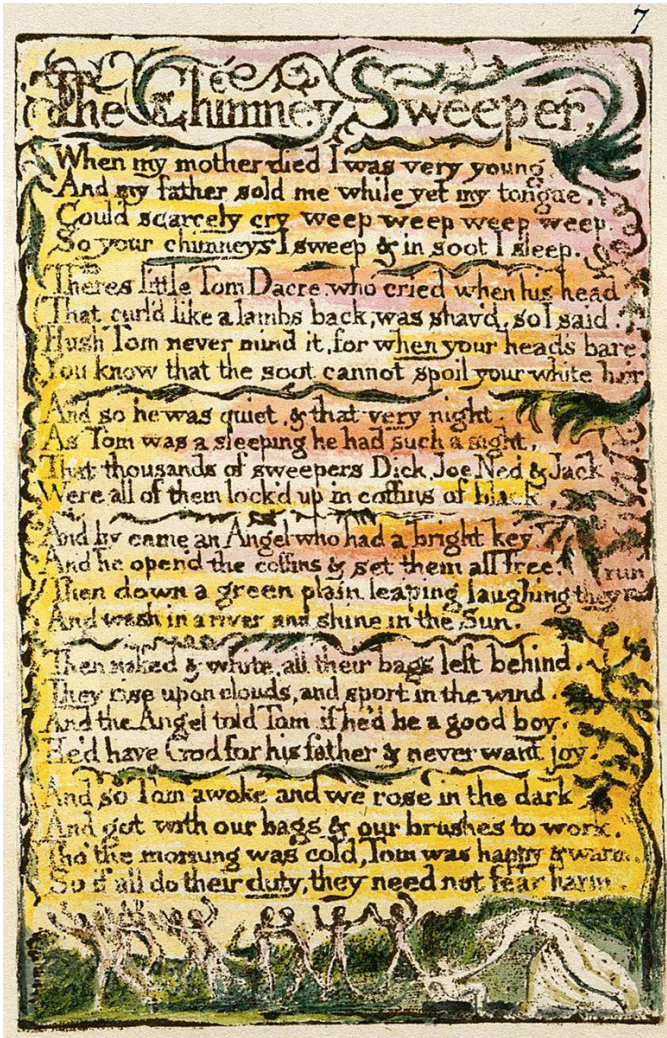 7
The Chimney Sweeper
When my mother died I was very young
And my father sold me while yet my tongue.
Could scarcely cry weep weep weep weep.
So your chimneys I sweep & in soot I sleep.
Theres little Tom Dacre who cried when his head
That curl'd like a lambs back, was shav'd, so I said.
Hush Tom never mind it, for when your heads bare,
You know that the soot cannot spoil your white hair
And so he was quiet, & that very night.
As Tom was a sleeping he had such a sight,
That thousands of sweepers Dick, Joe, Ned & Jack
Were all of them lock'd up in coffins of black,
And by came an Angel who had a bright key
And he open'd the coffins & set them all free.
run
Then down a green plain leaping laughing they
And wash in a river and shine in the Sun.
Then naked & white, all their bags left behind.
They rise upon clouds, and sport in the wind.
And the Angel told Tom if he'd be a good boy,
He'd have God for his father & never want joy.
And so Tom awoke and we rose in the dark
And got with our bags & our brushes to work.
Tho' the morning was cold, Tom was happy & warm.
So if all do their duty, they need not fear harm.